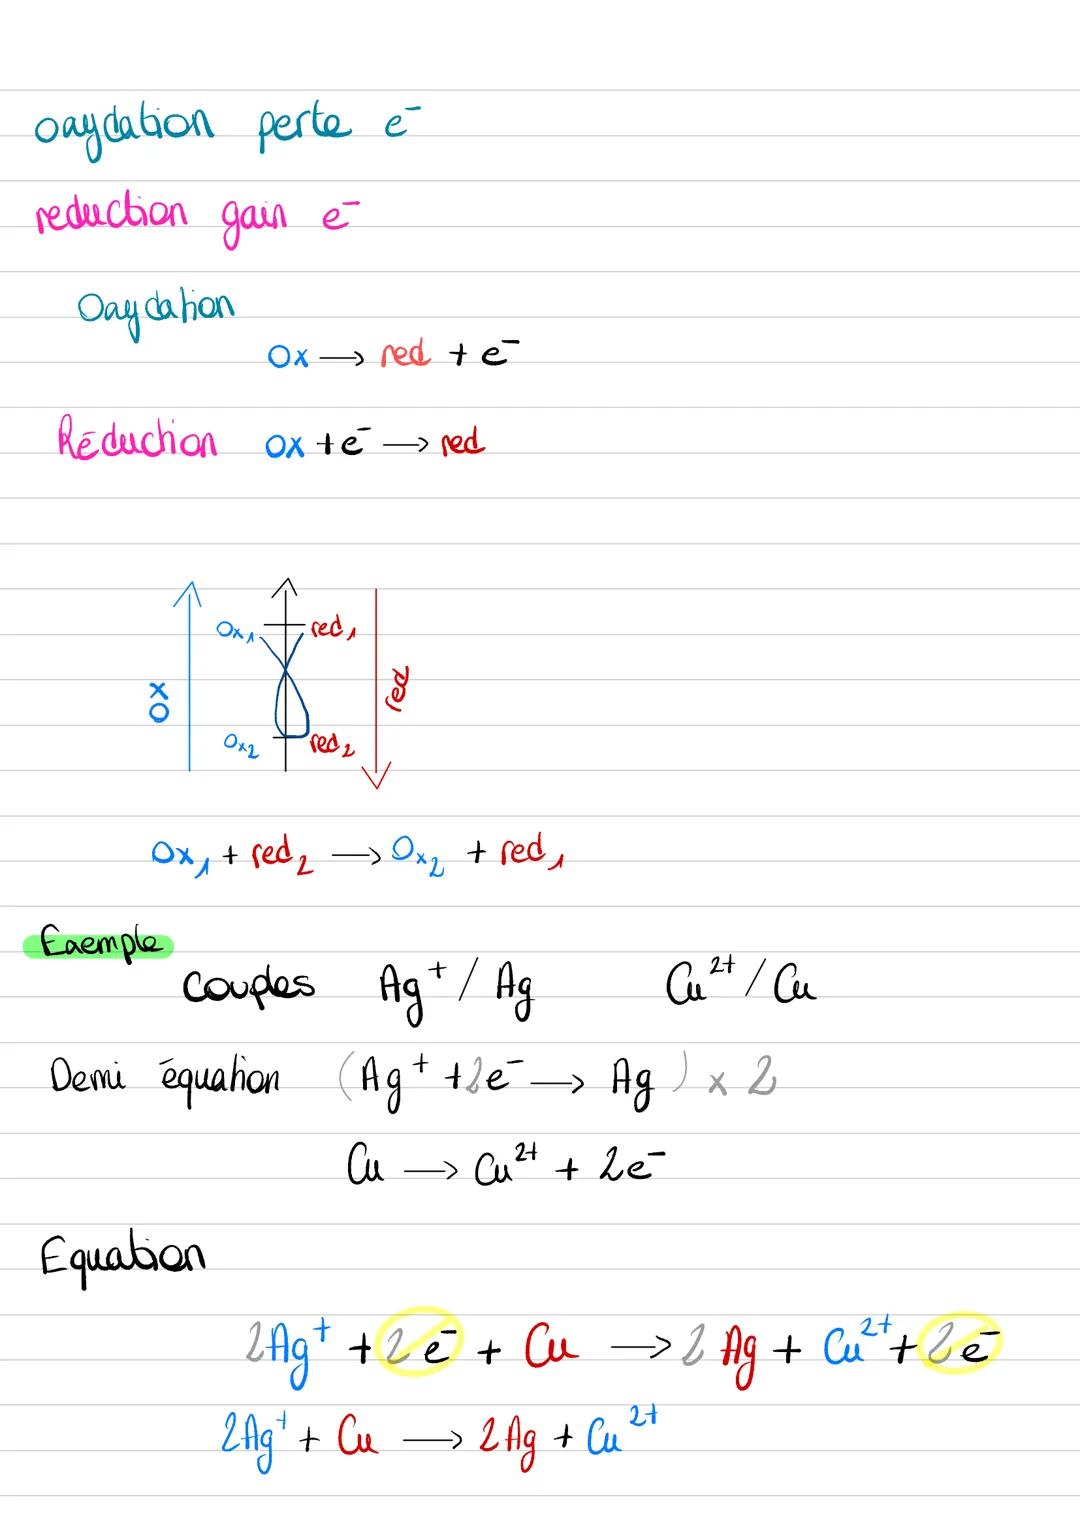 oxydation perte e⁻
reduction gain e⁻
Oxydation
Ox → red + e⁻
Réduction ox + e⁻ → red
Ox₁ red₁
ox
red
Ox₂ red₂
Ox₁ + red₂ → Ox₂ + red₁
Exemple
couples Ag⁺ / Ag Cu²⁺ / Cu
Demi équation (Ag⁺ + 2e⁻ → Ag) x 2
Cu → Cu²⁺ + 2e⁻
Equation
2Ag⁺ + 2e⁻ + Cu → 2 Ag + Cu²⁺ + 2e⁻
2Ag⁺ + Cu → 2Ag + Cu²⁺